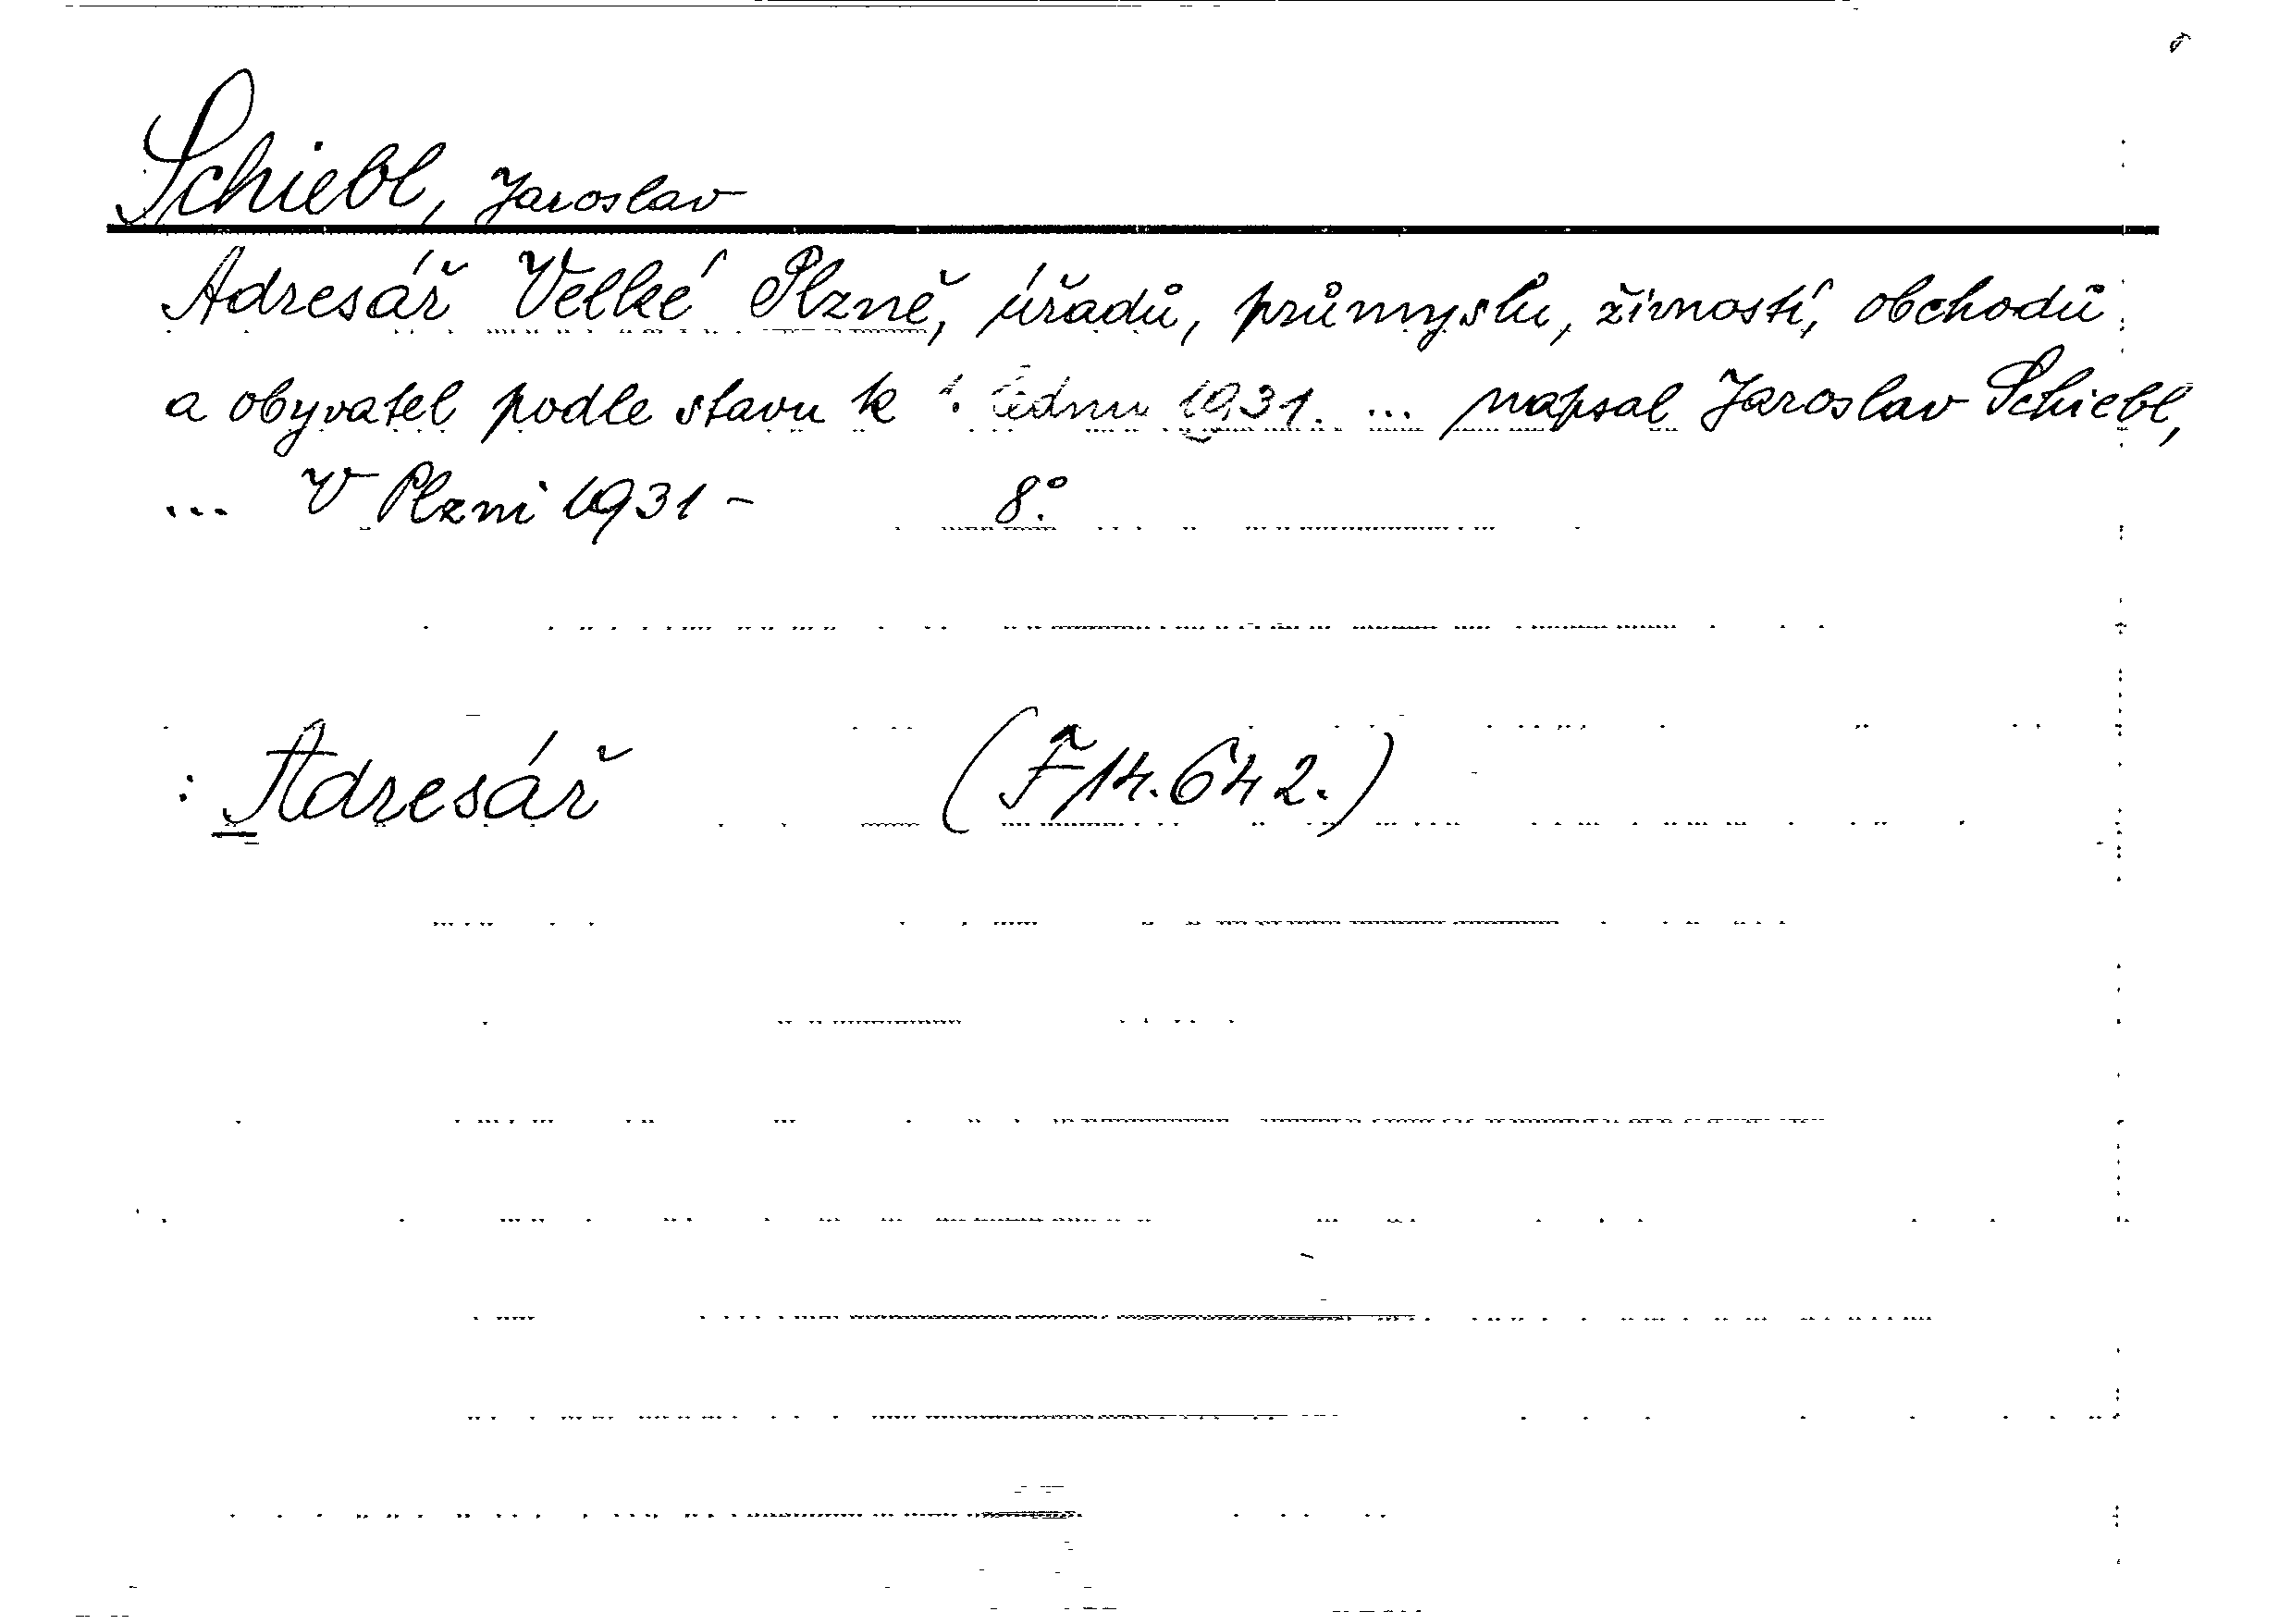 Schiebl, Jaroslav
Adresář Velké Plzně, úřadů, průmyslu, živností, obchodů
a obyvatel podle stavu k 1. lednu 1931. ... napsal Jaroslav Schiebl,
... V Plzni 1931 - 8°.
: Adresář (F 14.642.)